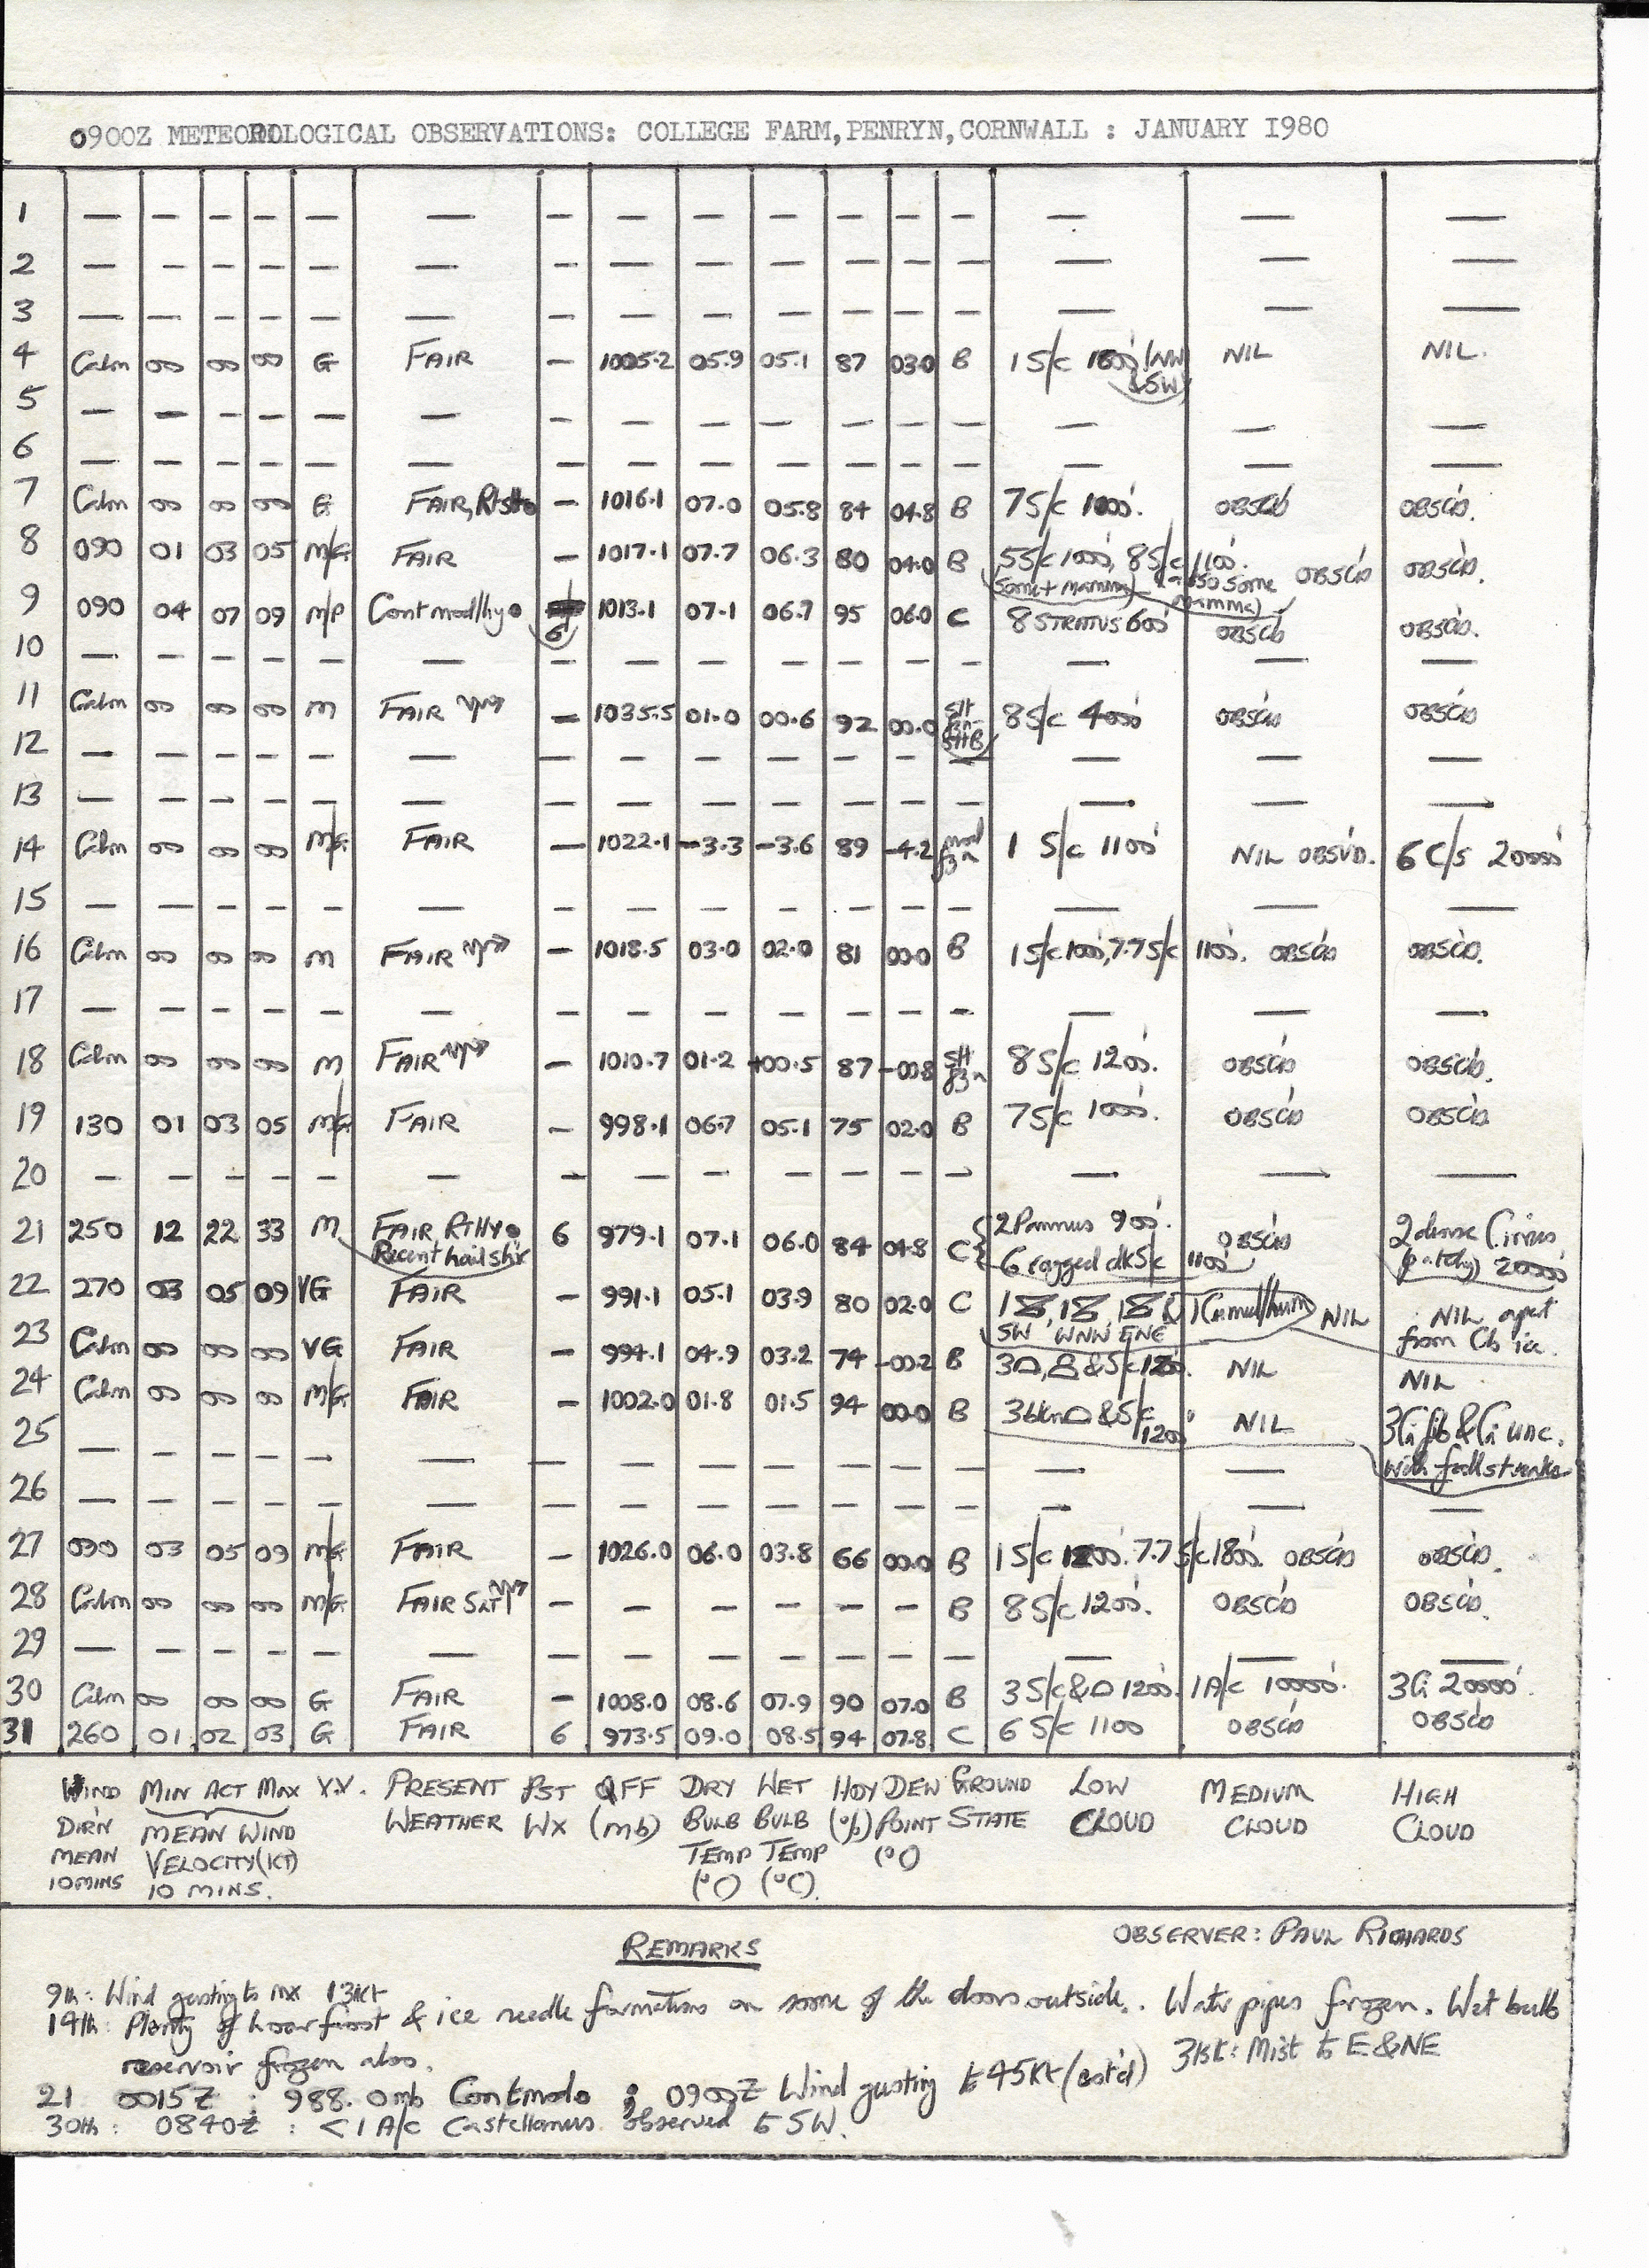 0900Z METEOROLOGICAL OBSERVATIONS: COLLEGE FARM, PENRYN, CORNWALL : JANUARY 1980
1 — — — — — — — — — — — — — — — —
2 — — — — — — — — — — — — — — — —
3 — — — — — — — — — — — — — — — —
4 Calm 00 00 00 G FAIR — 1005.2 05.9 05.1 87 03.0 B 1 S/c 1800' (NW & SW) NIL NIL.
5 — — — — — — — — — — — — — — — —
6 — — — — — — — — — — — — — — — —
7 Calm 00 00 00 G FAIR, — 1016.1 07.0 05.8 84 04.8 B 7 S/c 1000'. OBSC'D OBSC'D.
8 090 01 03 05 M/G FAIR — 1017.1 07.7 06.3 80 04.0 B 5 S/c 1000', 8 S/c 1100'. (some + mamma) (also some mamma) OBSC'D OBSC'D.
9 090 04 07 09 M/P Cont mod/hy ● 6 1013.1 07.1 06.7 95 06.0 C 8 STRATUS 600' OBSC'D OBSC'D.
10 — — — — — — — — — — — — — — — —
11 Calm 00 00 00 M FAIR — 1035.5 01.0 00.6 92 00.0 8 S/c 4000' OBSC'D OBSC'D
12 — — — — — — — — — — — — — — — —
13 — — — — — — — — — — — — — — — —
14 Calm 00 00 00 M/G FAIR — 1022.1 -3.3 -3.6 89 -4.2 mod fzn 1 S/c 1100' NIL OBSV'D. 6 C/s 20000'
15 — — — — — — — — — — — — — — — —
16 Calm 00 00 00 M FAIR — 1018.5 03.0 02.0 81 00.0 B 1 S/c 1000', 7.7 S/c 1100'. OBSC'D OBSC'D.
17 — — — — — — — — — — — — — — — —
18 Calm 00 00 00 M FAIR — 1010.7 01.2 +00.5 87 -00.8 slt fzn 8 S/c 1200'. OBSC'D OBSC'D.
19 130 01 03 05 M/G FAIR — 998.1 06.7 05.1 75 02.0 B 7 S/c 1000'. OBSC'D OBSC'D.
20 — — — — — — — — — — — — — — — —
21 250 12 22 33 M FAIR RtHy ● Recent hail sh'r 6 979.1 07.1 06.0 84 04.8 C 2 Pannus 900'. 6 ragged dk S/c 1100' OBSC'D 2 dense Cirrus (patchy) 20000'
22 270 03 05 09 VG FAIR — 991.1 05.1 03.9 80 02.0 C SW WNW ENE NIL NIL apart from Cb ice.
23 Calm 00 00 00 VG FAIR — 994.1 04.9 03.2 74 -00.2 B & S/c 1200'. NIL NIL
24 Calm 00 00 00 M/G FAIR — 1002.0 01.8 01.5 94 00.0 B 3 bkn & S/c 1200' NIL 3 Ci fib & Ci unc. with fallstreaks
25 — — — — — — — — — — — — — — — —
26 — — — — — — — — — — — — — — — —
27 090 03 05 09 M/G FAIR — 1026.0 06.0 03.8 66 00.0 B 1 S/c 1200'. 7.7 S/c 1800'. OBSC'D OBSC'D.
28 Calm 00 00 00 M/G FAIR — — — — — — B 8 S/c 1200'. OBSC'D OBSC'D.
29 — — — — — — — — — — — — — — — —
30 Calm 00 00 00 G FAIR — 1008.0 08.6 07.9 90 07.0 B 3 S/c & 1200'. 1 A/c 10000'. 3 Ci 20000'.
31 260 01 02 03 G FAIR 6 973.5 09.0 08.5 94 07.8 C 6 S/c 1100 OBSC'D OBSC'D
WIND MIN ACT MAX V.V. PRESENT PST QFF DRY WET H'DY DEW GROUND LOW MEDIUM HIGH
DIR'N MEAN WIND WEATHER WX (mb) BULB BULB (%) POINT STATE CLOUD CLOUD CLOUD
MEAN VELOCITY (KT) TEMP TEMP (°C)
10 MINS 10 MINS. (°C) (°C)
REMARKS OBSERVER: PAUL RICHARDS
9th: Wind gusting to mx 13kt
14th: Plenty of hoar frost & ice needle formations on some of the doors outside. Water pipes frozen. Wet bulb
reservoir frozen also. 31st: Mist to E & NE
21 0015Z : 988.0mb Cont mod ● ; 0900Z Wind gusting to 45Kt (est'd)
30th: 0840Z : <1 A/c Castellanus observed to SW.